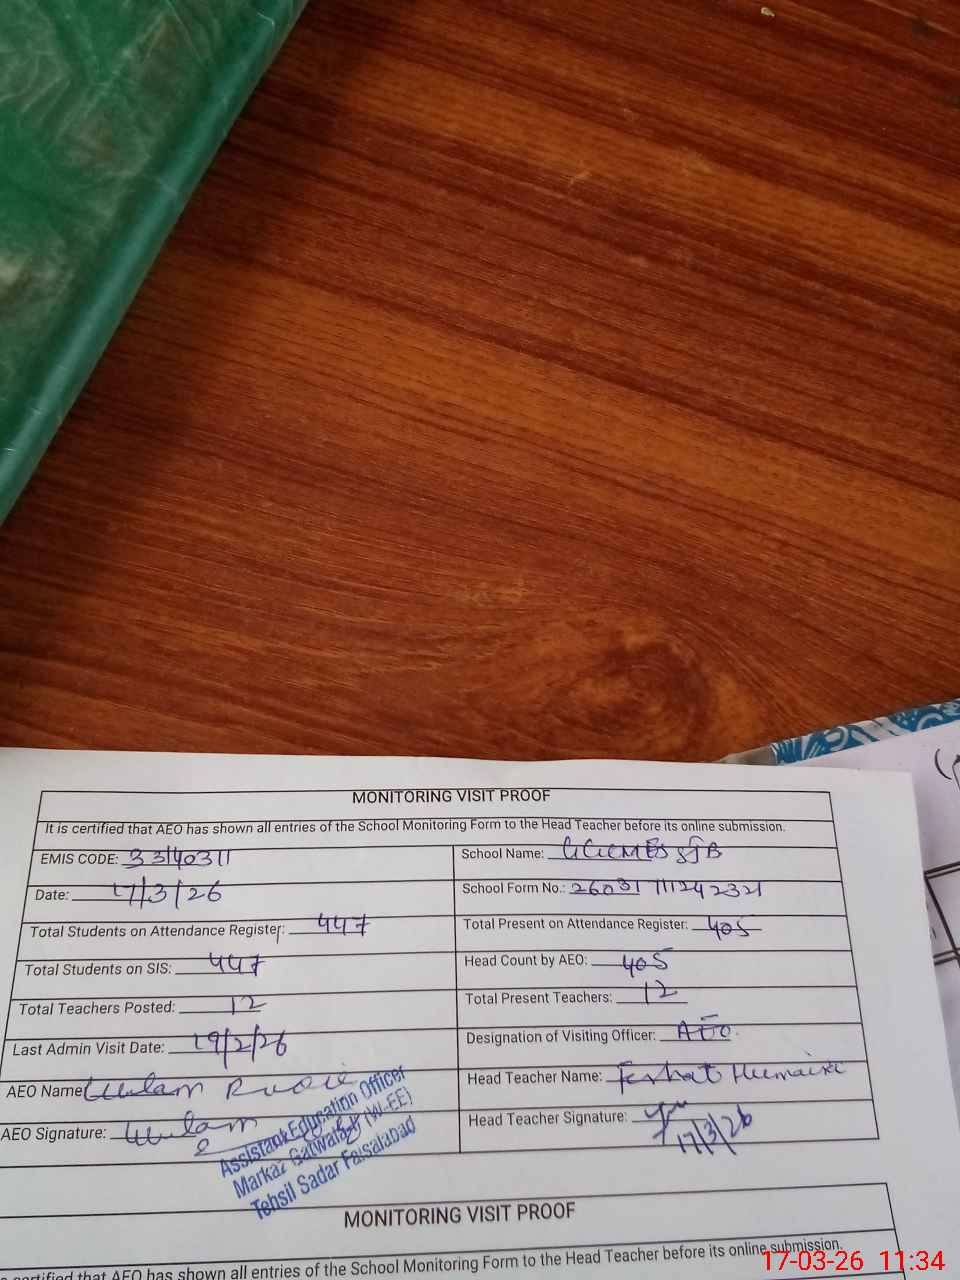 MONITORING VISIT PROOF
It is certified that AEO has shown all entries of the School Monitoring Form to the Head Teacher before its online submission.
EMIS CODE: 33140311
School Name:
Date: 17/3/26
School Form No.:
Total Students on Attendance Register: 447
Total Present on Attendance Register: 405
Total Students on SIS: 447
Head Count by AEO: 405
Total Teachers Posted: 12
Total Present Teachers: 12
Last Admin Visit Date: 19/2/26
Designation of Visiting Officer: AEO.
AEO Name
Head Teacher Name:
AEO Signature:
Head Teacher Signature:
17/3/26
Assistant Education Officer
Markaz (W-EE)
Tehsil Sadar Faisalabad
MONITORING VISIT PROOF
certified that AEO has shown all entries of the School Monitoring Form to the Head Teacher before its online submission.
17-03-26 11:34